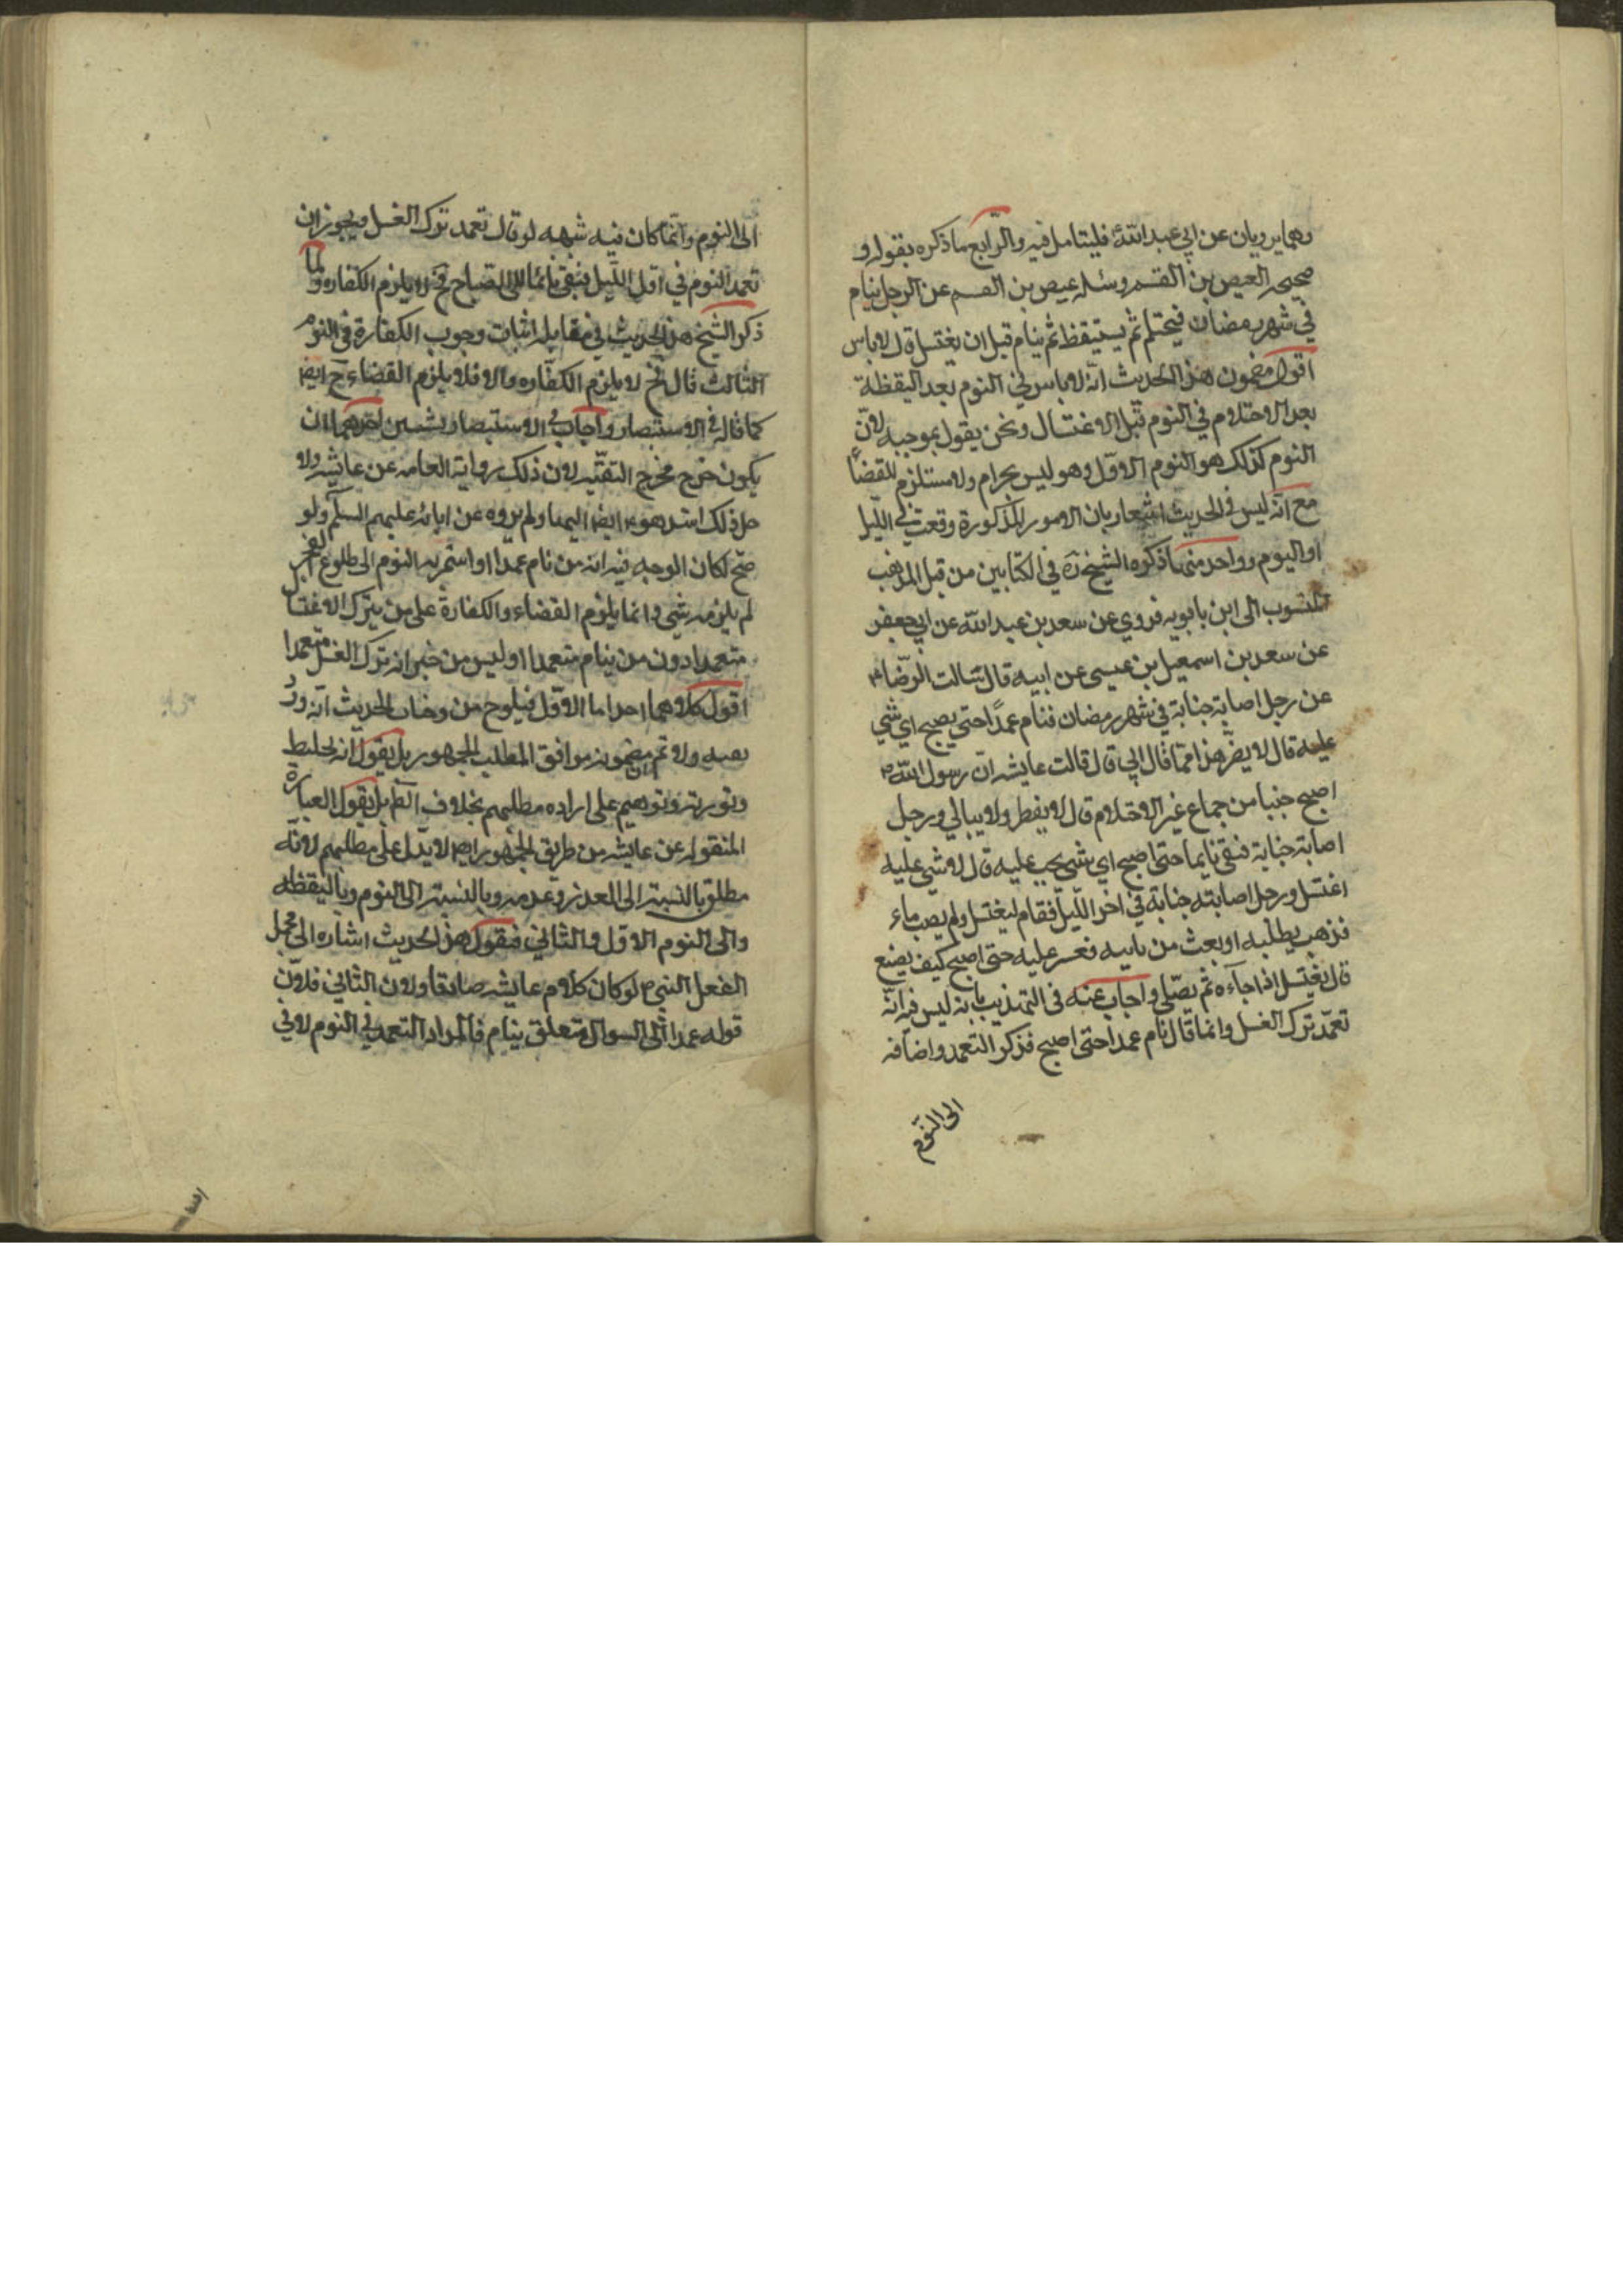 وهما يرويان عن ابي عبد الله ع فليتامل فيه والرّابع ما ذكره بقوله و
صحيحه العيص بن القسم وسئله عيص بن القسم عن الرجل ينام
في شهر رمضان فيحتلم ثم يستيقظ ثم ينام قبل ان يغتسل قال لا باس
اقول مضمون هذا الحديث انّه لا باس في النوم بعد اليقظة
بعد الاحتلام في النوم قبل الاغتسال ونحن يقول بموجبه لانّ
النوم كذلك هو النوم الاوّل وهو ليس بحرام ولا مستلزم للقضاء
مع انّه ليس في الحديث اشعار بان الامور المذكورة وقعت في اللّيل
او اليوم وواحد منها ذكره الشيخ ره في الكتابين من قبل المذهب
المنسوب الى ابن بابويه فروي عن سعد بن عبد الله عن ابي جعفر
عن سعد بن اسمعيل بن عيسى عن ابيه قال سالت الرّضا ع
عن رجل اصابته جنابة في شهر رمضان فنام عمداً حتى يصبح اي شي
عليه قال لا يضرّ هذا مما قال ابي قال قالت عايشه ان رسول الله ص
اصبح جنبا من جماع غير الاحتلام قال لا يفطر ولا يبالي ورجل
اصابته جنابة فبقي نايما حتى اصبح اي شي يجب عليه قال لا شي عليه
اغتسل ورجل اصابته جنابة في اخر اللّيل فقام ليغتسل ولم يصب ماء
فذهب يطلبه او بعث من ياتيه فعسر عليه حتى اصبح كيف يصنع
قال يغتسل اذا جآءه ثم يصلّي واجاب عنه في التهذيب بانه ليس فيه انّه
تعمّد ترك الغسل وانما قال نام عمداً حتى اصبح فذكر التعمد واضافه
الى النّوم
الى النوم وانّما كان فيه شبهه لو قال تعمد ترك الغسل ويجوز ان
تعمد النوم في اول اللّيل فبقي نائما الى الصباح فح لا يلزم الكفاره ولما
ذكر الشيخ هذا الحديث في مقابل اثبات وجوب الكفارة في النوم
الثالث قال فح لا يلزم الكفّاره والا فلا يلزم القضاء ح ايض
كما قاله في الاستبصار واجاب في الاستبصار بشيئين احدهما ان
يكون خرج مخرج التقيّه لان ذلك رواية العامه عن عايشه ولا
جل ذلك اسنده ع ايض اليها ولم يروه عن ابائه عليهم السلم ولو
صح لكان الوجه فيه انه من نام عمدا او استمر به النوم الى طلوع الفجر
لم يلزمه شي وانما يلزم القضاء والكفارة على من يترك الاغتسال
متعمدا دون من ينام متعمدا وليس من خبر انه ترك الغسل متعمدا
اقول كلاهما احد اما الاوّل فيلوح من وحنات الحديث انّه ورد
تقيه ولا تم مضمونه موافق المطلب الجمهور بل يقول انه تخليط
وتورية وتوهيم على اراده مطلبهم بخلاف الظ بل يقول العبارة
المنقوله عن عايشه من طريق الجمهور ايض لا يدلّ على مطلبهم لانّه
مطلق بالنسبة الى العذر وعدمه وبالنسبة الى النوم وباليقظه
والى النوم الاول والثاني فنقول هذا الحديث اشاره الى محمل
الفعل النبي ص لو كان كلام عايشه صادقا ولان الثاني فلانّ
قوله عمدا الى السوال متعلق بنام فالمراد التعمد في النوم لا في